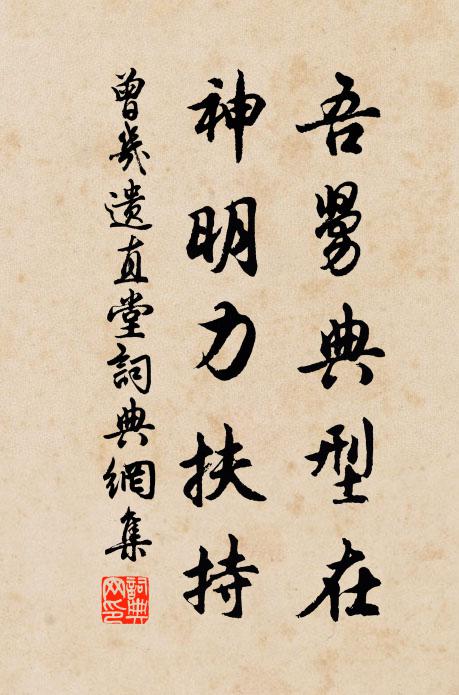 吾舅典型在
神明力扶持
曾幾遺直堂詞典網集
詞典網印